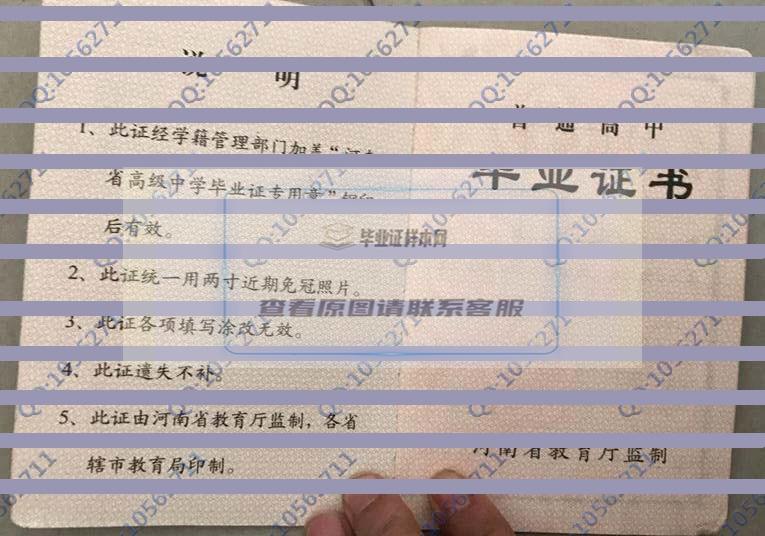 说 明
1、此证经学籍管理部门加盖“河南
省高级中学毕业证专用章”钢印
后有效。
2、此证统一用两寸近期免冠照片。
3、此证各项填写涂改无效。
4、此证遗失不补。
5、此证由河南省教育厅监制，各省
辖市教育局印制。
普通高中
毕业证书
河南省教育厅监制
毕业证样本网
查看原图请联系客服
QQ:10562711